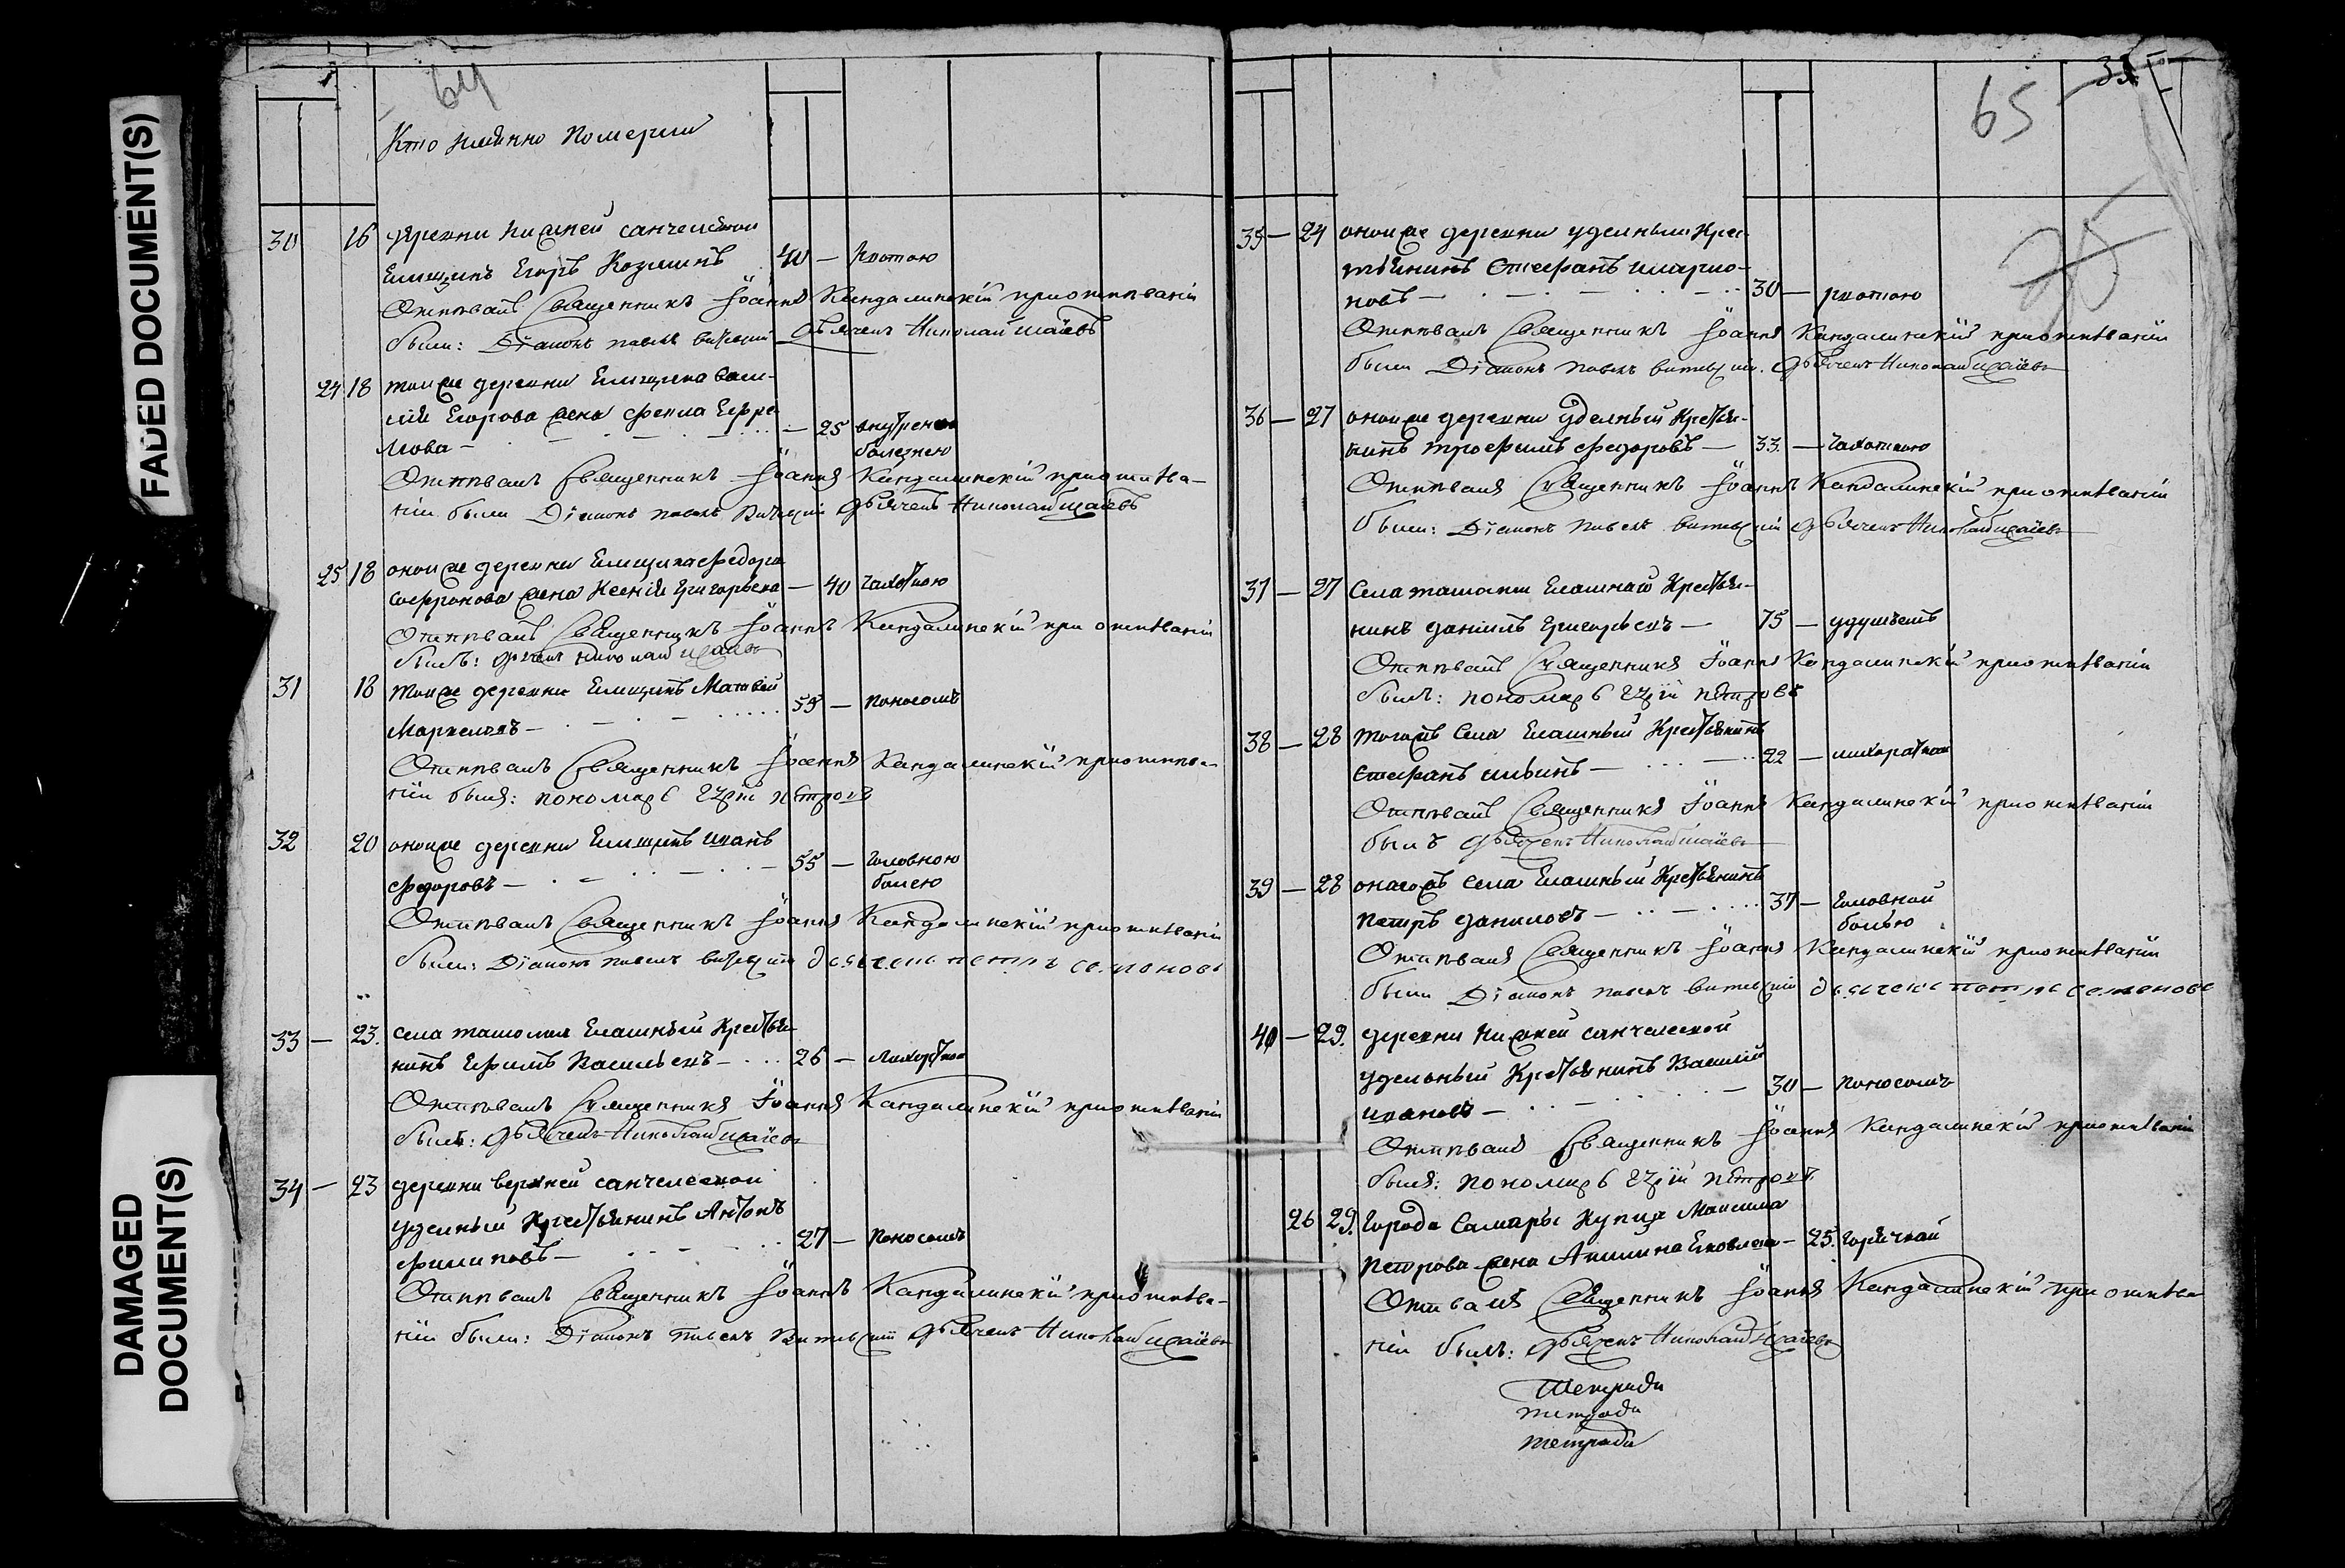 FADED DOCUMENT(S)
DAMAGED
DOCUMENT(S)
64
Кто имянно померли
30 16 деревни нижней санчелеевой
Ельщикъ Егоръ Козминъ 40 — рвотою
Отпѣвалъ Священникъ Іоаннъ Кандалинскій приотпѣваніи
были: Діаконъ павелъ дьячекъ Николай Исаіевъ
24 18 тойже деревни Ельщика Васи-
лія Егорова жена фекла Ефре-
мова — 25 внутренею
болезнею
Отпѣвалъ Священникъ Іоаннъ Кандалинскій приотпѣва-
ніи были Діаконъ павелъ дьячекъ Николай Исаіевъ
25 18 онойже деревни Ельщика федора
Софронова жена Ксенія Григорьева — 40 чахоткою
Отпѣвалъ Священникъ Іоаннъ Кандалинскій при отпѣваніи
былъ: дьячекъ Николай Исаіевъ
31 18 тойже деревни Ельщикъ Матвей
Маркеловъ — 55 — поносомъ
Отпѣвалъ Священникъ Іоаннъ Кандалинскій приотпѣва-
ніи былъ: пономарь петровъ
32 20 онойже деревни Ельщикъ иванъ
федоровъ — 55 — головною
болею
Отпѣвалъ Священникъ Іоаннъ Кандалинскій приотпѣваніи
были: Діаконъ павелъ дьячекъ петръ семеновъ
33 — 23. села ташолки Ехашный Крестья-
нинъ Ефимъ Васильевъ — 26 — лихораткою
Отпѣвалъ Священникъ Іоаннъ Кандалинскій приотпѣваніи
былъ: дьячекъ Николай Исаіевъ
34 — 23 деревни верхней санчелеевой
уделный Крестьянинъ Антонъ
филиповъ — 27 — поносомъ
Отпѣвалъ Священникъ Іоаннъ Кандалинскій приотпѣва-
ніи были: Діаконъ павелъ дьячекъ Николай Исаіевъ
65
35 — 24 онойже деревни уделный Крес-
тьянинъ Стефанъ иларио-
новъ — 30 — рвотою
Отпѣвалъ Священникъ Іоаннъ Кандалинскій приотпѣваніи
были Діаконъ павелъ дьячекъ Николай Исаіевъ
36 — 27 онойже деревни уделный Крестья-
нинъ трофимъ федоровъ — 33. — чахоткою
Отпѣвалъ Священникъ Іоаннъ Кандалинскій приотпѣваніи
были: Діаконъ павелъ дьячекъ Николай Исаіевъ
37 — 27 Села ташолки Ехашнаго Крестья-
нинъ даніилъ Григорьевъ — 75 — удушьемъ
Отпѣвалъ Священникъ Іоаннъ Кандалинскій приотпѣваніи
былъ: пономарь петровъ
38 — 28 тогожъ Села Ехашный Крестьянинъ
Стефанъ ильинъ — 22 — лихораткою
Отпѣвалъ Священникъ Іоаннъ Кандалинскій приотпѣваніи
былъ дьячекъ Николай Исаіевъ
39 — 28 онагожъ Села Ехашный Крестьянинъ
петръ даниловъ — 37 — головной
болью
Отпѣвалъ Священникъ Іоаннъ Кандалинскій приотпѣваніи
были Діаконъ павелъ дьячекъ петръ семеновъ
40 — 29. деревни нижней санчелеевой
удельный Крестьянинъ Василій
ивановъ — 30 — поносомъ
Отпѣвалъ Священникъ Іоаннъ Кандалинскій приотпѣваніи
былъ: пономарь петровъ
26 29. Города Самары Купца Максима
петрова жена Акилина Яковлева — 25. горячкой
Отпѣвалъ Священникъ Іоаннъ Кандалинскій при отпѣва
ніи былъ: дьячекъ Николай Исаіевъ
Тетради
тетради
тетради